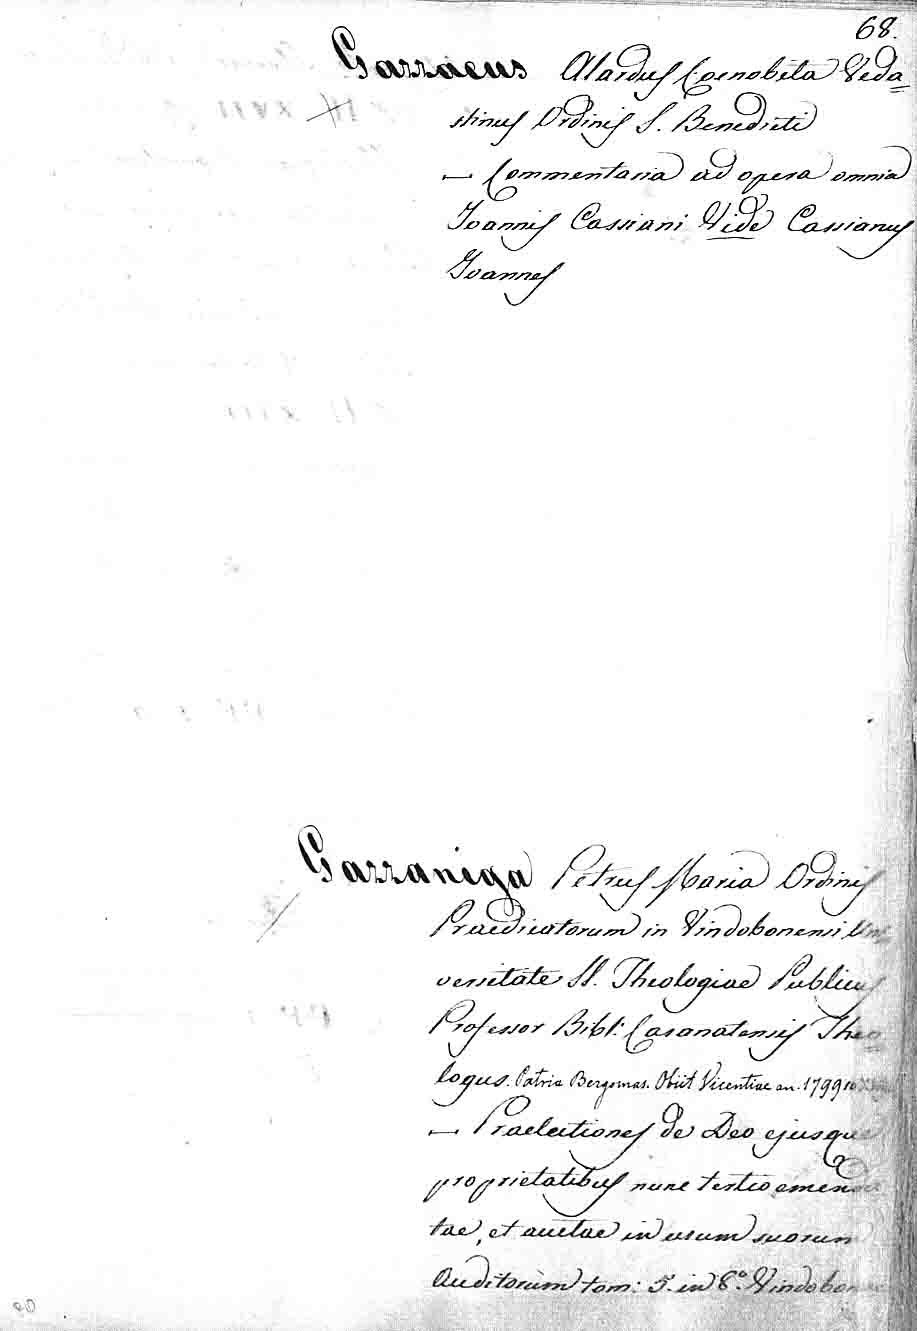 68.
Gazzaeus Alardus Coenobita Veda=
stinus Ordinis S. Benedicti
— Commentaria ad opera omnia
Joannis Cassiani Vide Cassianus
Joannes
Gazzaniga Petrus Maria Ordinis
Praedicatorum in Vindobonensi Uni=
versitate SS. Theologiae Publicus
Professor Bibl: Casanatensis Theo=
logus. Patria Bergomas. Obiit Vicentiae an. 1799
— Praelectiones de Deo ejusque
proprietatibus nunc tertio emenda
tae, et auctae in usum suorum
Auditorum tom: 5. in 8.° Vindobonae